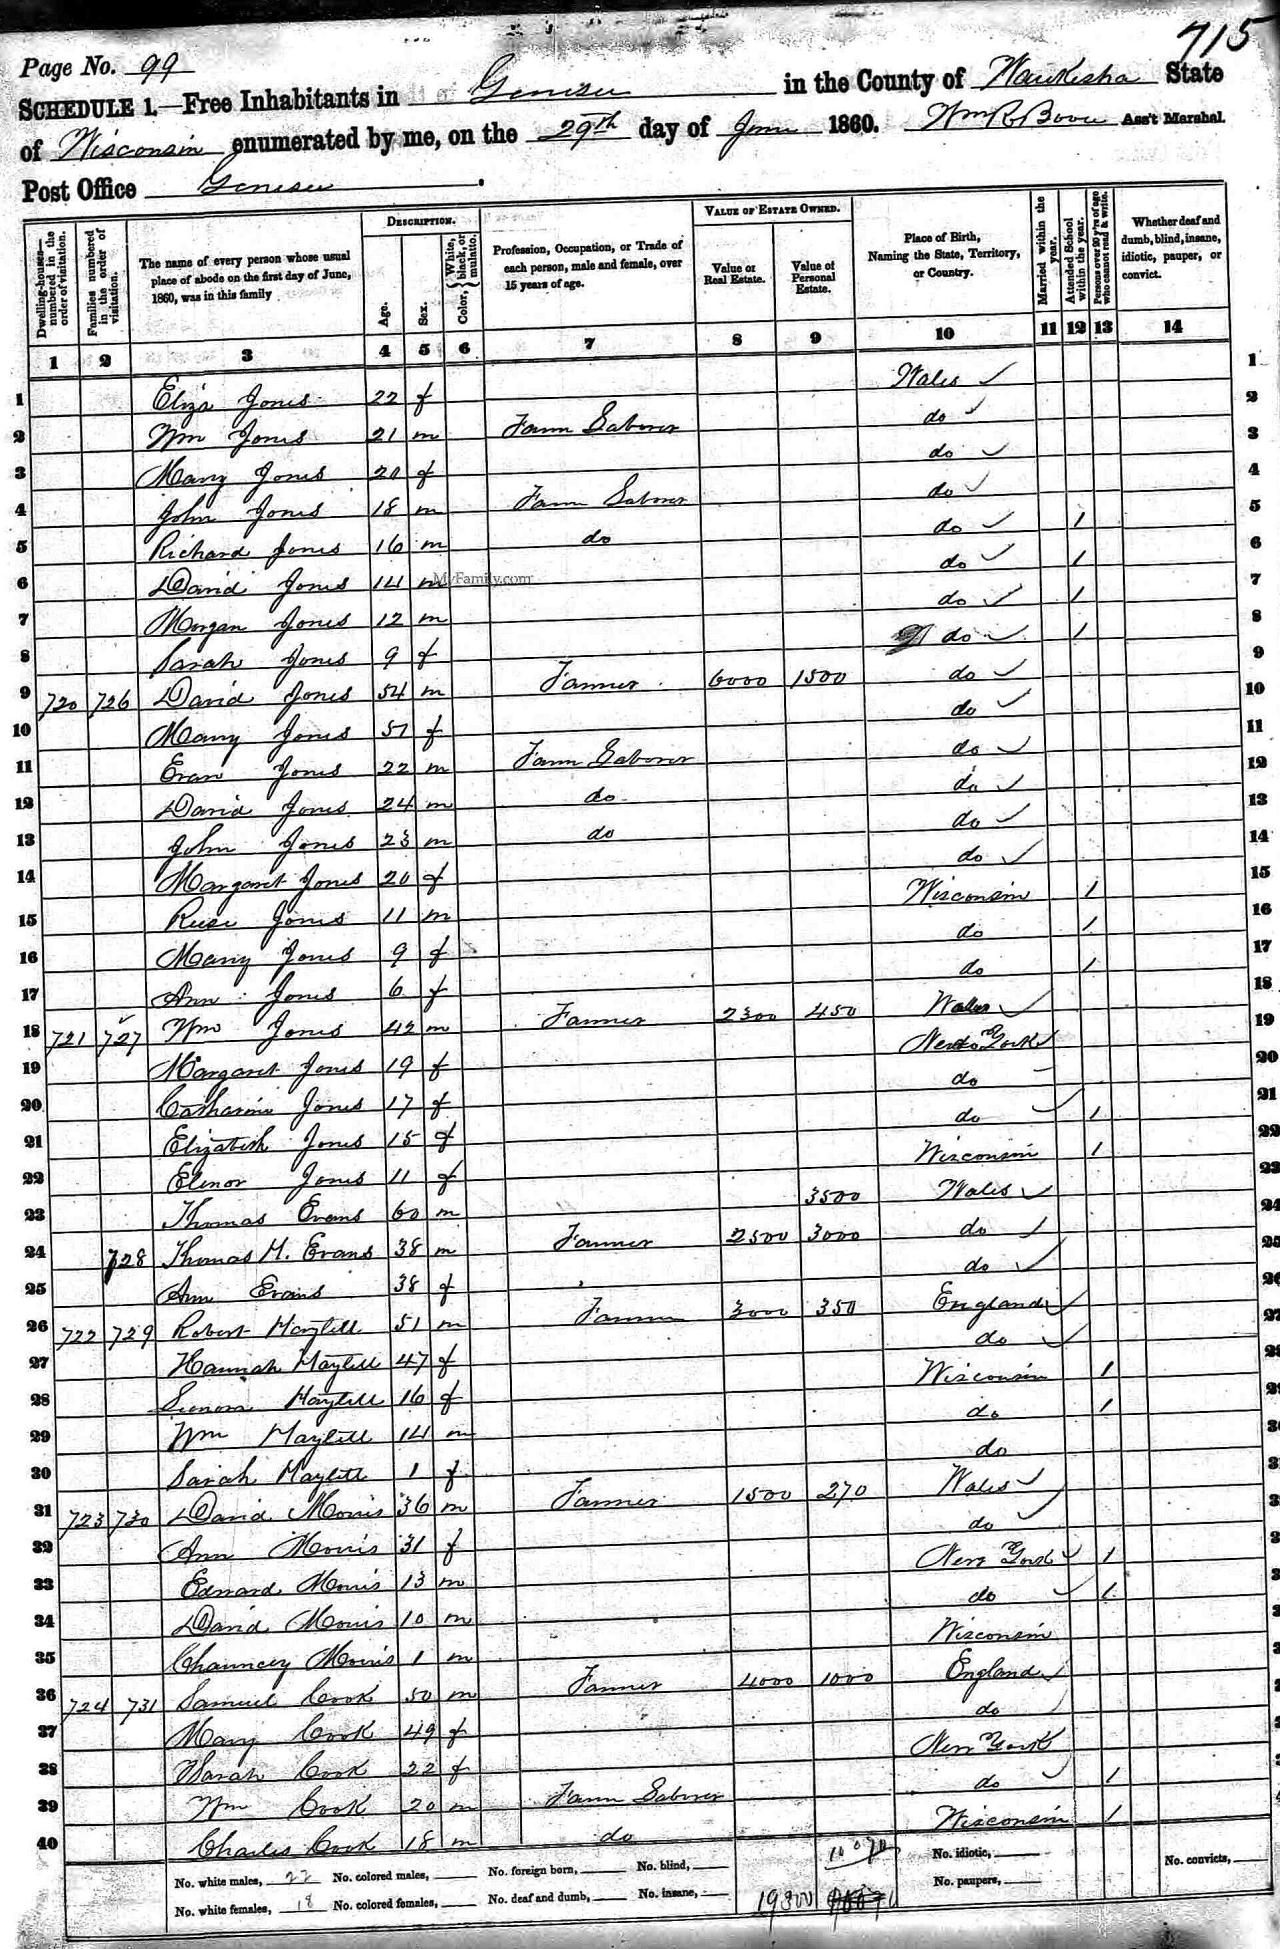 715
Page No. 99
SCHEDULE 1.—Free Inhabitants in Genesee in the County of Waukesha State
of Wisconsin enumerated by me, on the 29th day of June 1860. Wm R Bovee Ass't Marshal.
Post Office Genesee.
DESCRIPTION. VALUE OF ESTATE OWNED.
Dwelling-houses—numbered in the order of visitation. Families numbered in the order of visitation. The name of every person whose usual place of abode on the first day of June, 1860, was in this family Age. Sex. Color, {White, black, or mulatto. Profession, Occupation, or Trade of each person, male and female, over 15 years of age. Value of Real Estate. Value of Personal Estate. Place of Birth, Naming the State, Territory, or Country. Married within the year. Attended School within the year. Persons over 20 y'rs of age who cannot read & write. Whether deaf and dumb, blind, insane, idiotic, pauper, or convict.
1 2 3 4 5 6 7 8 9 10 11 12 13 14
1 Eliza Jones 22 f Wales ✓ 1
2 Wm Jones 21 m Farm Laborer do ✓ 2
3 Mary Jones 20 f do ✓ 3
4 John Jones 18 m Farm Laborer do ✓ 4
5 Richard Jones 16 m do do ✓ 1 5
6 David Jones 14 m do ✓ 1 6
MyFamily.com
7 Morgan Jones 12 m do ✓ 1 7
8 Sarah Jones 9 f do ✓ 1 8
9 720 726 David Jones 54 m Farmer 6000 1500 do ✓ 9
10 Mary Jones 57 f do ✓ 10
11 Evan Jones 22 m Farm Laborer do ✓ 11
12 David Jones 24 m do do ✓ 12
13 John Jones 23 m do do ✓ 13
14 Margaret Jones 20 f do ✓ 14
15 Reese Jones 11 m Wisconsin 1 15
16 Mary Jones 9 f do 1 16
17 Ann Jones 6 f do 1 17
18 721 727 Wm Jones 42 m Farmer 2300 450 Wales ✓ 18
19 Margaret Jones 19 f New York ✓ 19
20 Catharine Jones 17 f do 20
21 Elizabeth Jones 15 f do ✓ 1 21
22 Elenor Jones 11 f Wisconsin 1 22
23 Thomas Evans 60 m 3500 Wales ✓ 23
24 728 Thomas M. Evans 38 m Farmer 2500 3000 do ✓ 24
25 Ann Evans 38 f do ✓ 25
26 722 729 Robert Maytell 51 m Farmer 3000 350 England ✓ 26
27 Hannah Maytell 47 f do ✓ 27
28 Maytell 16 f Wisconsin 1 28
29 Wm Maytell 14 m do 1
30 Sarah Maytell 1 f do
31 723 730 David Morris 36 m Farmer 1500 270 Wales ✓
32 Ann Morris 31 f do ✓
33 Edward Morris 13 m New York ✓ 1
34 David Morris 10 m do ✓ 1
35 Chauncey Morris 1 m Wisconsin
36 724 731 Samuel Cook 50 m Farmer 4000 1000 England ✓
37 Mary Cook 49 f do
38 Sarah Cook 22 f New York
39 Wm Cook 20 m Farm Laborer do ✓ 1
40 Charles Cook 18 m do Wisconsin 1
No. white males, 22 No. colored males, No. foreign born, No. blind, 10070 No. idiotic, No. convicts,
No. white females, 18 No. colored females, No. deaf and dumb, No. insane, 19300 No. paupers,